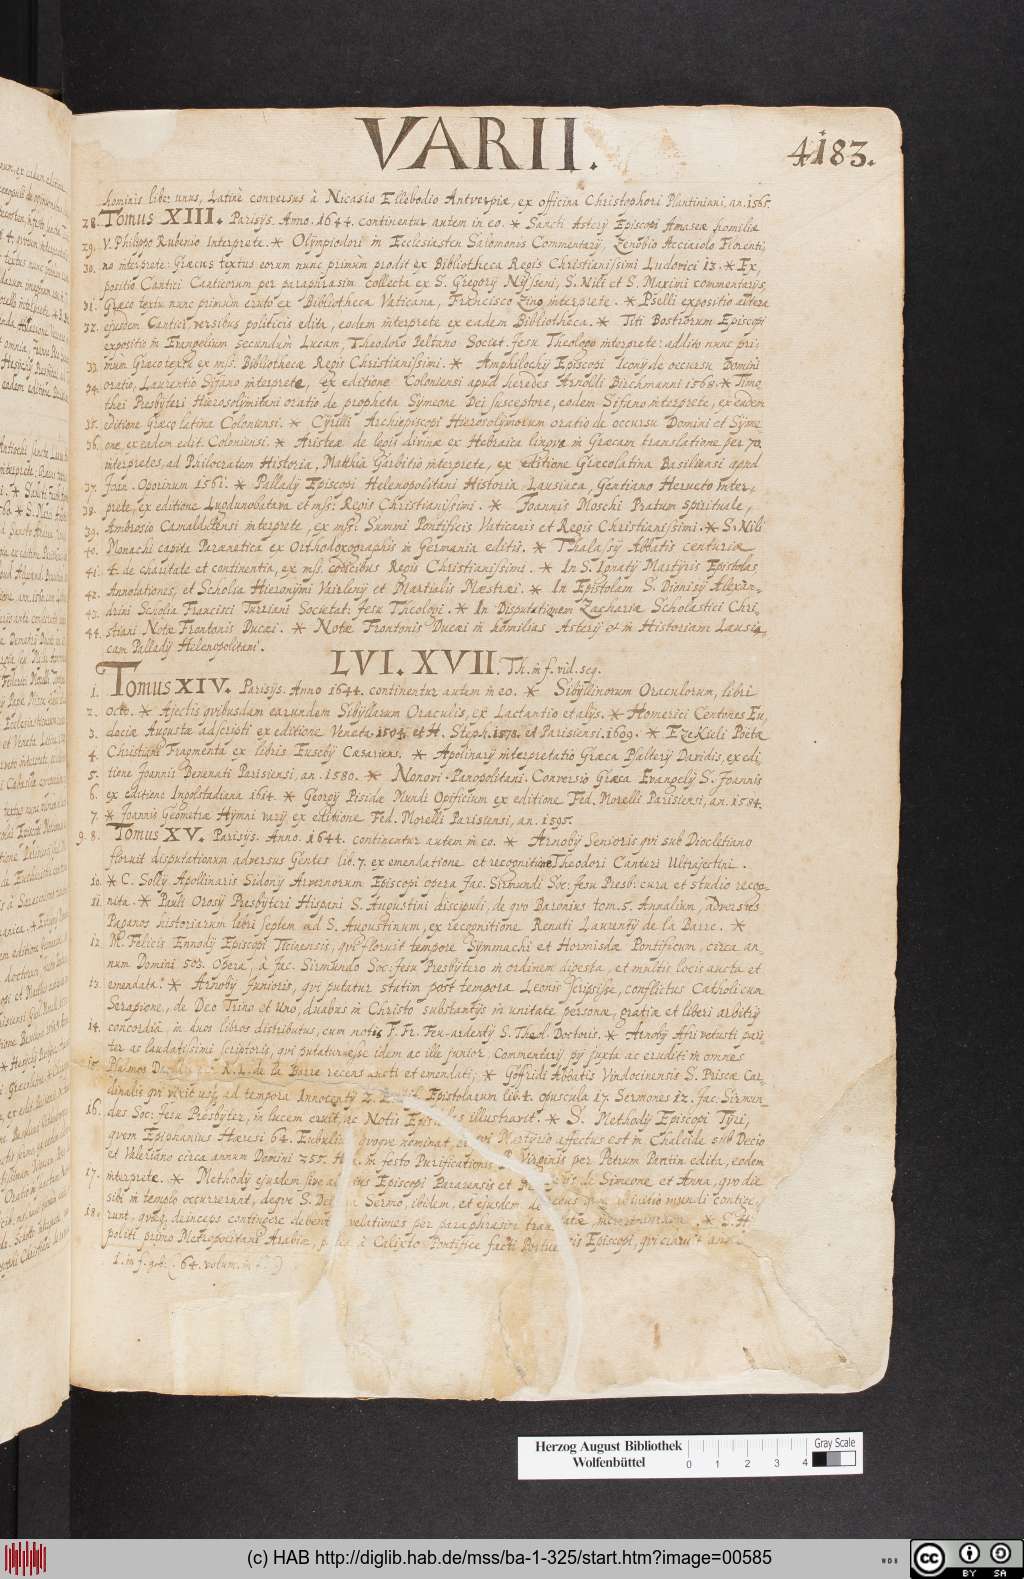 VARII.
4183.
hominis liber unus, Latinè conversus à Nicasio Ellebodio Antverpiæ, ex officina Christophori Plantiniani, an. 1565.
28. Tomus XIII. Parisijs. Anno. 1644. continentur autem in eo. * Sancti Asterij Episcopi Amaseæ homiliæ
29. V. Philippo Rubenio Interprete. * Olympiodori in Ecclesiasten Salomonis Commentarij, Zenobio Acciaiolo Florenti,
30. no interprete: Græcus textus eorum nunc primùm prodit ex Bibliotheca Regis Christianissimi Ludovici 13. * Ex,
positio Cantici Canticorum per paraphrasim collecta ex S. Gregorij Nysseni, S. Nili et S. Maximi commentarijs,
31. Græco textu nunc primùm eruto ex Bibliotheca Vaticana, Francisco Zino interprete. * Pselli expositio altera
32. ejusdem Cantici versibus politicis edita, eodem interprete ex eadem Bibliotheca. * Titi Bostrorum Episcopi
expositio in Evangelium secundum Lucam, Theodoro Peltano Societ. Jesu Theologo interprete: addito nunc pri-
33. mùm Græco textu ex mss. Bibliothecæ Regis Christianissimi. * Amphilochij Episcopi Iconij de occursu Domini
34. oratio, Laurentio Sifano interprete, ex editione Coloniensi apud heredes Arnoldi Birchmanni 1568. * Timo,
thei Presbyteri Hierosolymitani oratio de propheta Symeone Dei susceptore, eodem Sifano interprete, ex eadem
35. editione Græco latina Coloniensi. * Cyrilli Archiepiscopi Hierosolymorum oratio de occursu Domini et Syme-
36. one, ex eadem edit. Coloniensi. * Aristeæ de legis divinæ ex Hebraica lingva in Græcam translatione per 70.
interpretes, ad Philocratem Historia, Matthia Garbitio interprete, ex editione Græcolatina Basiliensi apud
37. Joan. Oporinum 1561. * Palladij Episcopi Helenopolitani Historia Lausiaca, Gentiano Herveto Inter,
38. prete, ex editione Lugdunobatava et mss. Regis Christianissimi. * Joannis Moschi Pratum spirituale,
39. Ambrosio Camaldulensi interprete, ex mss. Summi Pontificis Vaticanis et Regis Christianissimi. * S. Nili
40. Monachi capita Parænetica ex Orthodoxographis in Germania editis. * Thalassij Abbatis centuriæ
41. 4. de charitate et continentia, ex mss. codicibus Regis Christianissimi. * In S. Ignatij Martyris Epistolas
42. Annotationes, et Scholia Hieronymi Vairlenij et Martialis Mæstræi. * In Epistolam S. Dionisij Alexan-
43. drini Scholia Francisci Turriani Societat: Jesu Theologi. * In Disputationem Zachariæ Scholastici Chri,
44. stiani Notæ Frontonis Ducæi. * Notæ Frontonis Ducæi in homilias Asterij et in Historiam Lausia,
cam Palladij Helenopolitani.
LVI. XVII. Th. in f. vid. seq.
1. Tomus XIV. Parisijs. Anno 1644. continentur autem in eo. * Sibyllinorum Oraculorum, libri
2. octo. * Ajectis qvibusdam earundem Sibyllarum Oraculis, ex Lactantio et alijs. * Homerici Centones Eu,
3. dociæ Augustæ adscripti ex editione Veneta 1504. et H. Steph. 1578. et Parisiensi. 1609. * Ezekieli Poëtæ
4. Christiani Fragmenta ex libris Eusebij Cæsariens. * Apolinarij interpretatio Græca Psalterij Davidis, ex edi
5. tione Joannis Benenati Parisiensi, an. 1580. * Nonnri Panopolitani. Conversio Græca Evangelij S. Joannis
6. ex editione Ingolstadiana 1614. * Georgij Pisidæ Mundi Opificium ex editione Fed. Morelli Parisiensi, an. 1584.
7. * Joannis Geometræ Hymni varij ex editione Fed. Morelli Parisiensi, an. 1595.
9. 8. Tomus XV. Parisijs. Anno. 1644. continentur autem in eo. * Arnobij Senioris qvi sub Diocletiano
floruit disputationum adversus Gentes lib. 7. ex emendatione et recognitione Theodori Canteri Ultrajectini.
10. * C. Sollij Apollinaris Sidonij Arvernorum Episcopi opera Jac. Sirmundi Soc: Jesu Presb: cura et studio recog-
11. nita. * Pauli Orosij Presbyteri Hispani S. Augustini discipuli, de qvo Baronius tom. 5. Annalium, adversus
Paganos historiarum libri septem ad S. Augustinum, ex recognitione Renati Laurentij de la Barre. *
12. M. Felicis Ennodij Episcopi Ticinensis, qvi floruit tempore Symmachi et Hormisdæ Pontificum, circa an,
num Domini 503. Opera, à Jac. Sirmundo Soc: Jesu Presbytero in ordinem digesta, et multis locis aucta et
13. emendata. * Arnobij Junioris, qvi putatur statim post tempora Leonis scripsisse, conflictus Catholici cum
Serapione, de Deo Trino et Uno, duabus in Christo substantijs in unitate personæ, gratiæ et liberi arbitrij
14. concordiâ, in duos libros distributus, cum notis F. Fr. Feu-ardentij S. Theol. Doctoris. * Arnobij Afri vetusti pari-
ter ac laudatissimi scriptoris, qvi putatur esse idem ac ille junior, Commentarij, pij juxta ac eruditi in omnes
15. Psalmos R. L. de la Barre recens aucti et emendati. * Goffridi Abbatis Vindocinensis S. Priscæ Car-
dinalis qvi vixit usq ad tempora Innocentij 2. Epistolarum lib. 4. opuscula 17. Sermones 12. Jac. Sirmun-
16. dus Soc: Jesu Presbyter, in lucem eruit, ac Notis illustravit. * S. Methodij Episcopi Tyri,
qvem Epiphanius Hæresi 64. Eubulium qvoqve nominat, et qvi Martyrio affectus est in Chalcide sub Decio
et Valeriano circa annum Domini 255. in festo Purificationis B. Virginis per Petrum edita, eodem
17. interprete. * Methodij ejusdem sive Episcopi Patarensis et de Simeone et Anna, qvo die
sibi in templo occurrerunt, deqve S. Sermo, ibidem, et ejusdem de mundi contige,
18. runt, qvæq deinceps contingere debent relationes per paraphrasim * S. H
politi primo Metropolitani Arabiæ, à Calixto Pontifice facti Episcopi, qvi claruit
Herzog August Bibliothek
Wolfenbüttel
0 1 2 3 4
Gray Scale
(c) HAB http://diglib.hab.de/mss/ba-1-325/start.htm?image=00585
cc BY SA